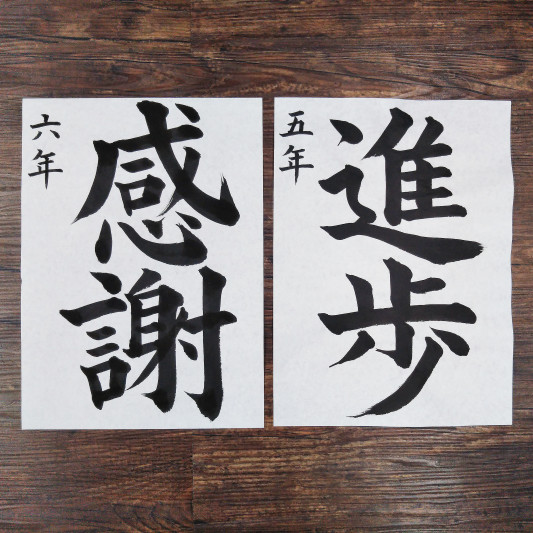 感謝
六年
進歩
五年